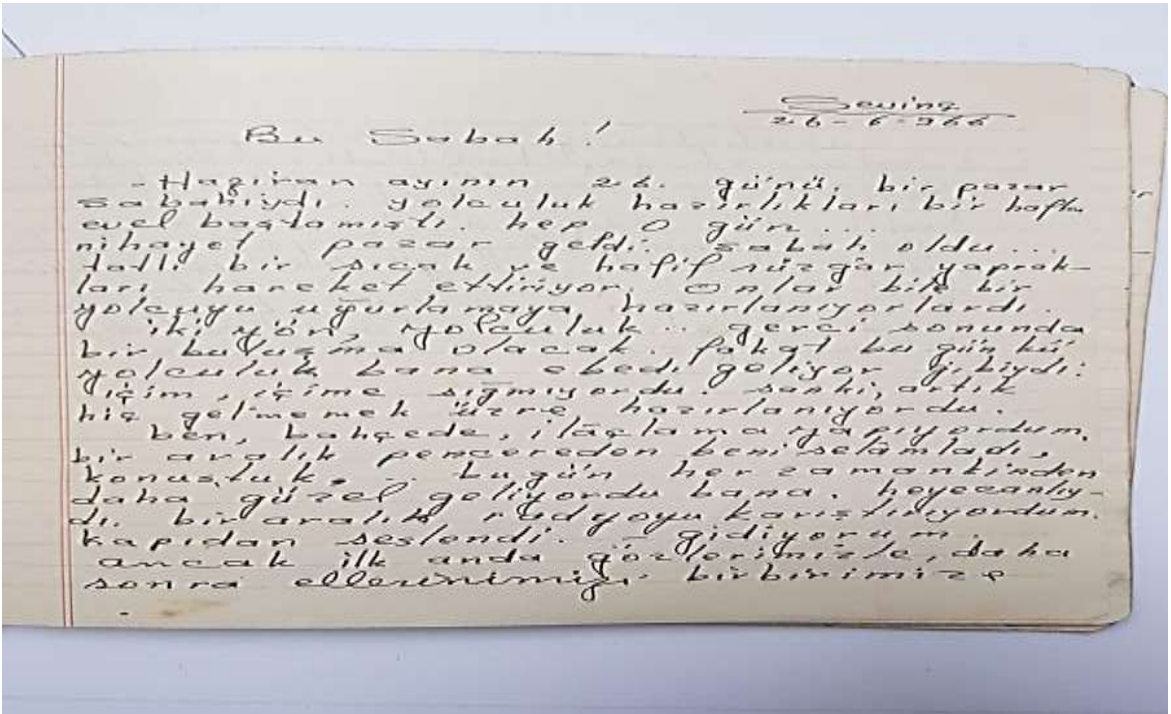 Sevinç
26-6-966
Bu Sabah!
-Haziran ayının 26. günü, bir pazar
sabahıydı. yolculuk hazırlıkları bir hafta
evel başlamıştı. hep o gün...
nihayet pazar geldi. sabah oldu...
tatlı bir sıcak ve hafif rüzgâr, yaprak-
ları hareket ettiriyor. Onlar bile bir
yolcuyu uğurlamaya hazırlanıyorlardı.
iki yön, yolculuk.. gerçi sonunda
bir buluşma olacak. fakat bu gün kü
yolculuk bana ebedi geliyor gibiydi:
içim, içime sığmıyordu. sanki, artık
hiç gelmemek üzre, hazırlanıyordu.
ben, bahçede, ilâçlama yapıyordum,
bir aralık pencereden beni selâmladı,
konuştuk... bugün her zamankinden
daha güzel geliyordu bana. heyecanlıy-
dı. bir aralık radyoyu karıştırıyordum.
kapıdan seslendi. - gidiyorum.
ancak ilk anda gözlerimizle, daha
sonra ellerinimizi birbirimize